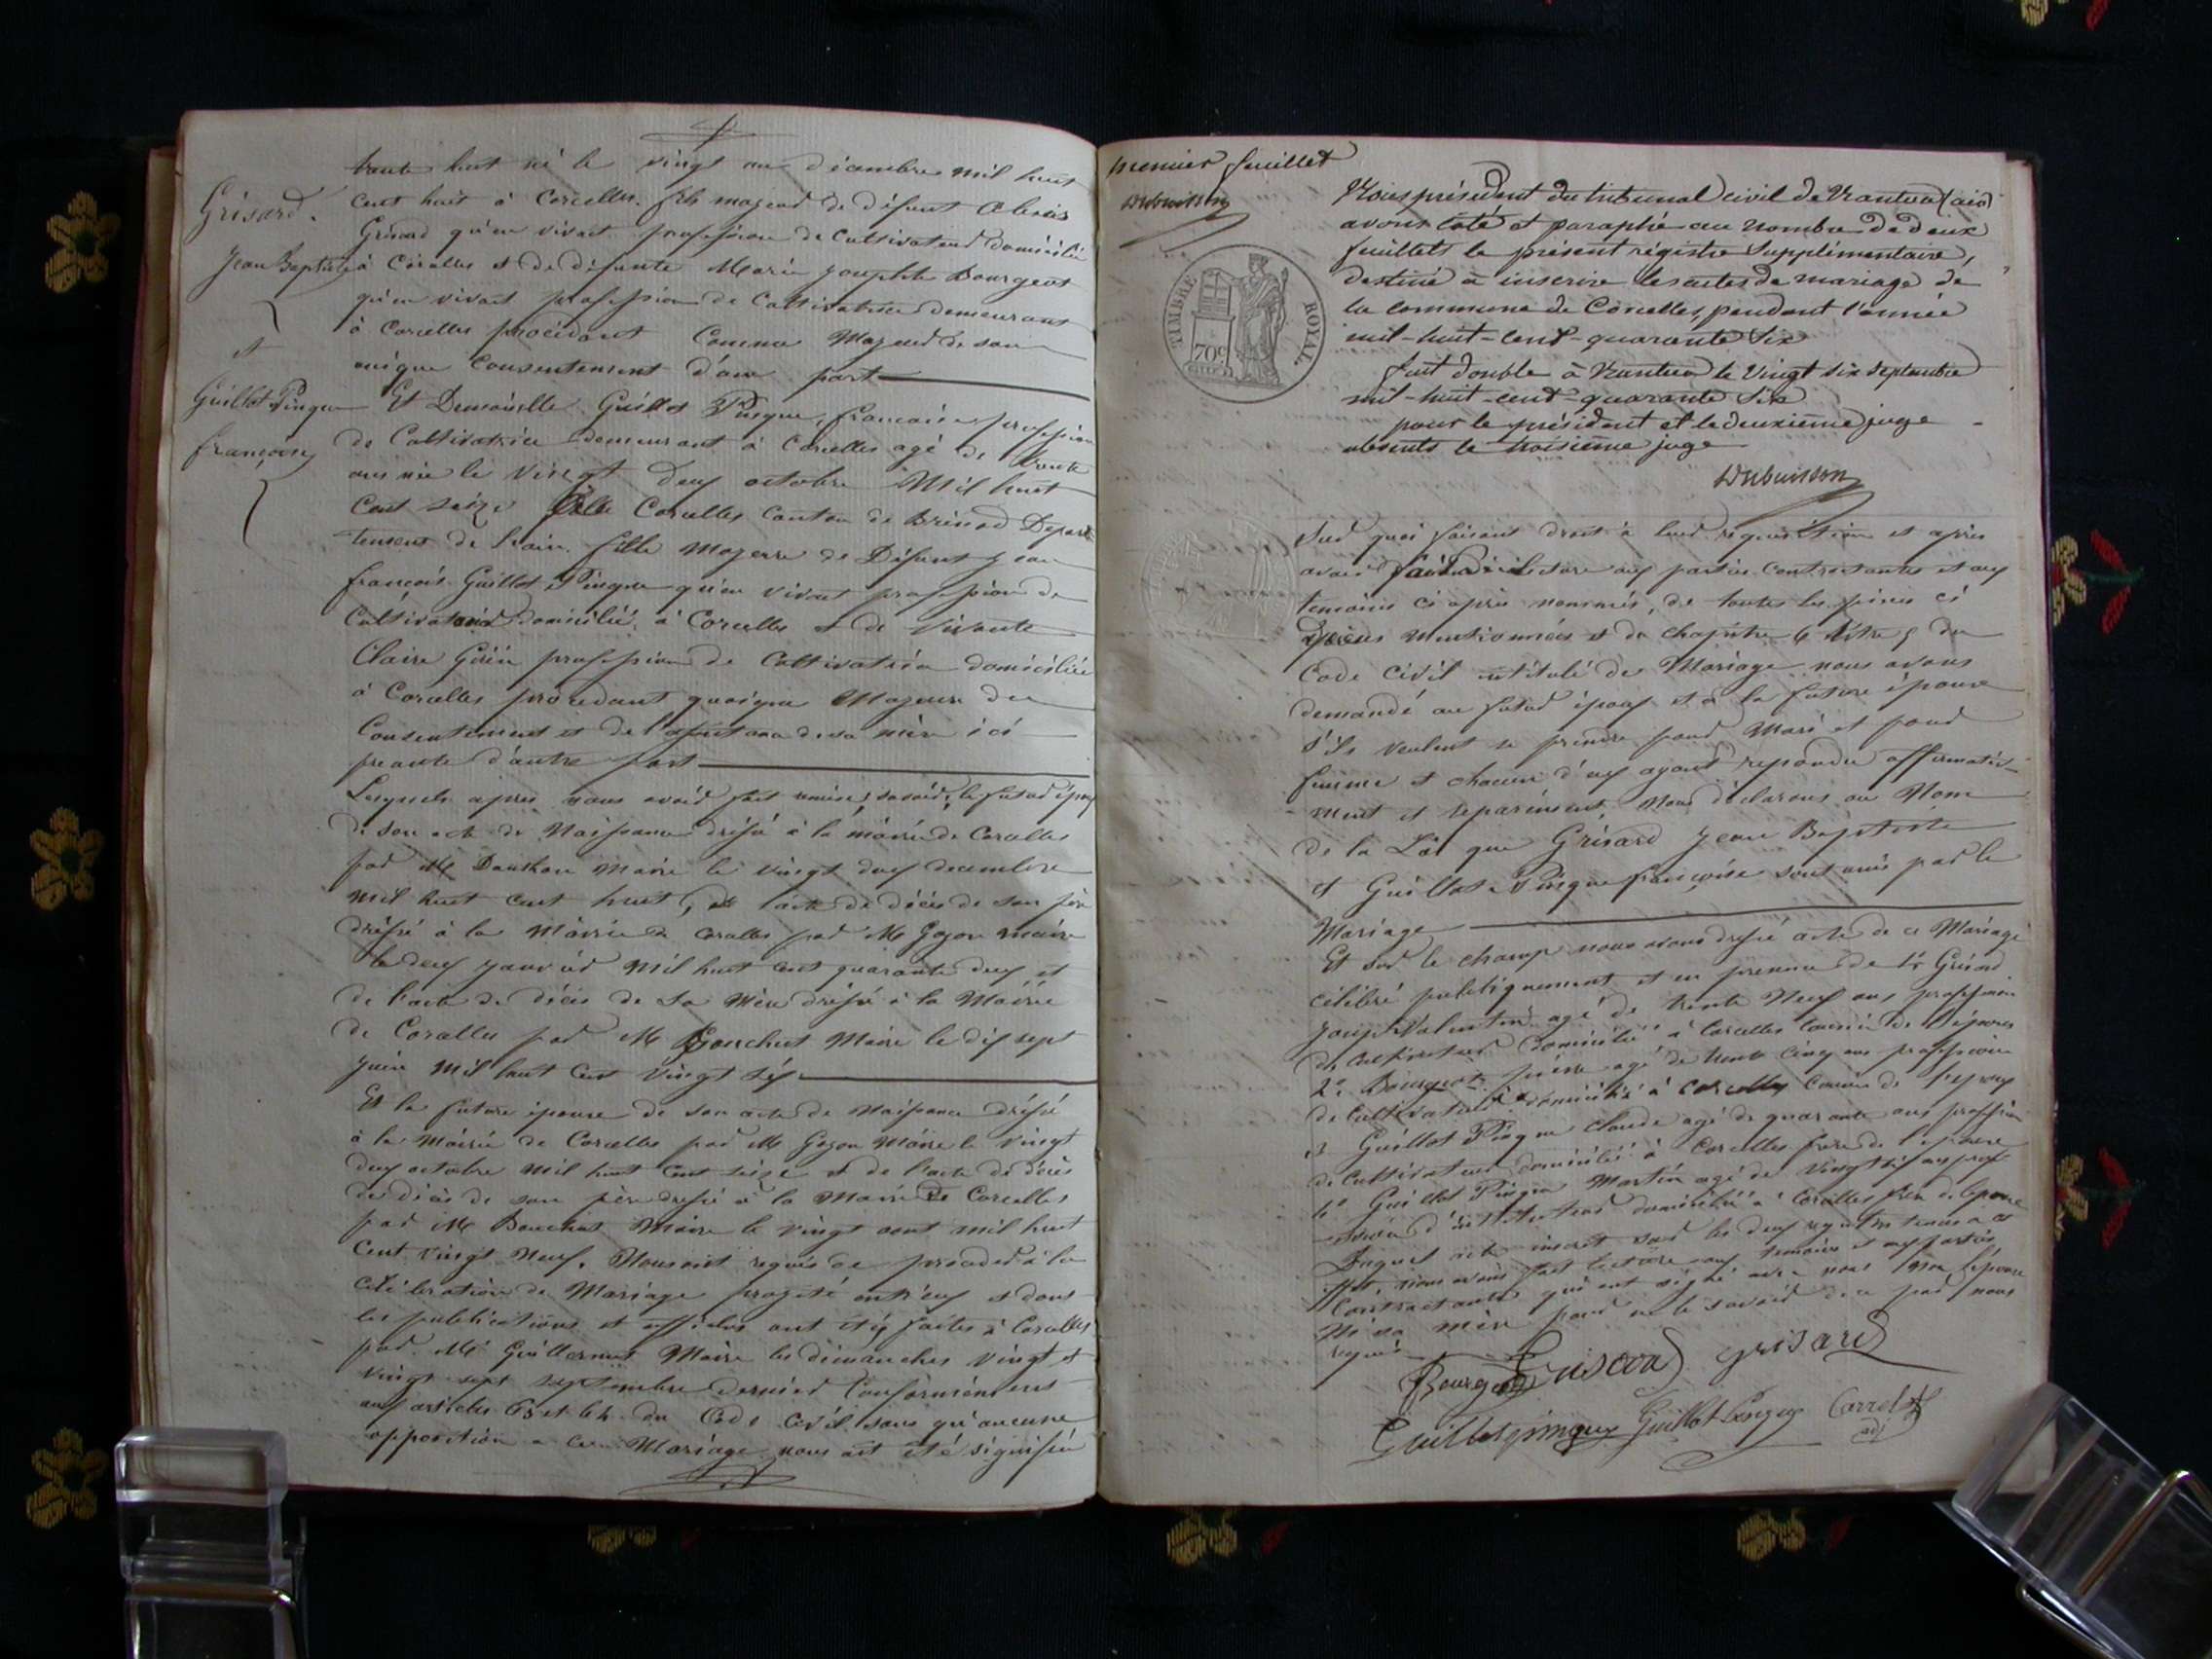 trente huit né le vingt un décembre mil huit
cent huit à Corcelles. fils majeur de défunt Alexis
Grisard qu'en vivant profession de cultivateur domicilié
à Corcelles et de défunte Marie Josephte Bourgeot
qu'en vivant profession de Cultivatrice demeurant
à Corcelles procédant Comme Majeur de son
unique Consentement d'une part
Grisard.
Jean Baptiste
et
Guillot Pingue
françoise
Et Demoiselle Guillot Pingue, françoise profession
de Cultivatrice demeurant à Corcelles agé de trente
ans née le vingt Deux octobre Mil huit
Cent seize Corcelles Canton de Brénod Depar
tement de l'ain. fille Majeure de Défunt Jean
françois Guillot Pingue qu'en vivant profession de
Cultivateur domicilié à Corcelles et de vivante
Claire profession de Cultivatrice domiciliée
à Corcelles procedant quoique Majeure du
Consentement et de l'assistance de sa mère ici
presente d'autre part
Lesquels apres nous avoir fait remise, savoir, le futur époux
de son acte de Naissance dréssé à la mairie de Corcelles
par M Maire le vingt deux decembre
mil huit cent huit, de l'acte de décès de son père
dréssé à la Mairie de Corcelles par M Goyon maire
le deux Janvier Mil huit cent quarante deux et
de l'acte de décès de sa Mère dréssé à la Mairie
de Corcelles par M Bonchut Maire le dix sept
Juin Mil huit Cent vingt six
Et la future épouse de son acte de Naissance dréssé
à la Mairie de Corcelles par M Goyon Maire le vingt
deux octobre mil huit cent seize et de l'acte de décès
de décès de son père dressé à la Mairie de Corcelles
par M Bonchut Maire le vingt aout mil huit
Cent vingt Neuf. Nous ont requis de procéder à la
célébration du Mariage projeté entr'eux et dont
les publications et affiches ont été faites à Corcelles
par Mr Guillermet Maire les dimanches vingt et
vingt sept septembre dernier Conformément
aux articles 63 et 64 du Code Civil sans qu'aucune
opposition a ce Mariage nous ait été signifiée
premier feuillet
Dubuisson
TIMBRE ROYAL
70c
Nous président du tribunal civil de Nantua (ain)
avons coté et paraphé au nombre de deux
feuillets le présent régistre Supplémentaire,
destiné à inscrire les actes de mariage de
la commune de Corcelles, pendant l'année
mil-huit-cent-quarante Six
fait double à Nantua le Vingt six Septembre
mil-huit-cent quarante Six
pour le président et le deuxième juge
absents le troisième juge
Dubuisson
Sur quoi faisant droit à leur réquisition et après
avoir fait lecture aux parties Contractantes et aux
temoins ci après nommés, de toutes les pièces ci
dessus mentionnées et du chapitre 6 titre 5 du
Code Civil intitulé du Mariage nous avons
demandé au futur époux et à la future épouse
s'ils veulent se prendre pour Mari et pour
femme et chacun d'eux ayant repondu affirmative-
ment et séparément, Nous déclarons au Nom
de la Loi que Grisard Jean Baptiste
et Guillot Pingue françoise sont unis par le
Mariage
Et sur le champ nous avons dressé acte de ce Mariage
célébré publiquement et en presence de 1° Grisard
Joseph Valentin agé de trente Neuf ans profession
de cultivateur domicilié à Corcelles Cousin de l'époux
2° Bourgeot pierre agé de trente cinq ans profession
de Cultivateur domicilié à Corcelles Cousin de l'epoux
3 Guillot Pingue Claude agé de quarante ans profession
de Cultivateur domicilié à Corcelles frère de l'epouse
4° Guillot Pingue Martin agé de vingt six ans prof
ession d'instituteur domicilié à Corcelles frère de l'epouse
Duquel acte inscrit sur les deux registres tenus à cet
effet, nous avons fait lecture aux temoins et aux parties
Contractantes qui ont signé avec nous non l'épouse
Ni sa mère pour ne le savoir de ce par nous
requis
Bourgeot Grisard grisard
Guillot pingue Guillot Pingue Carrel
adj